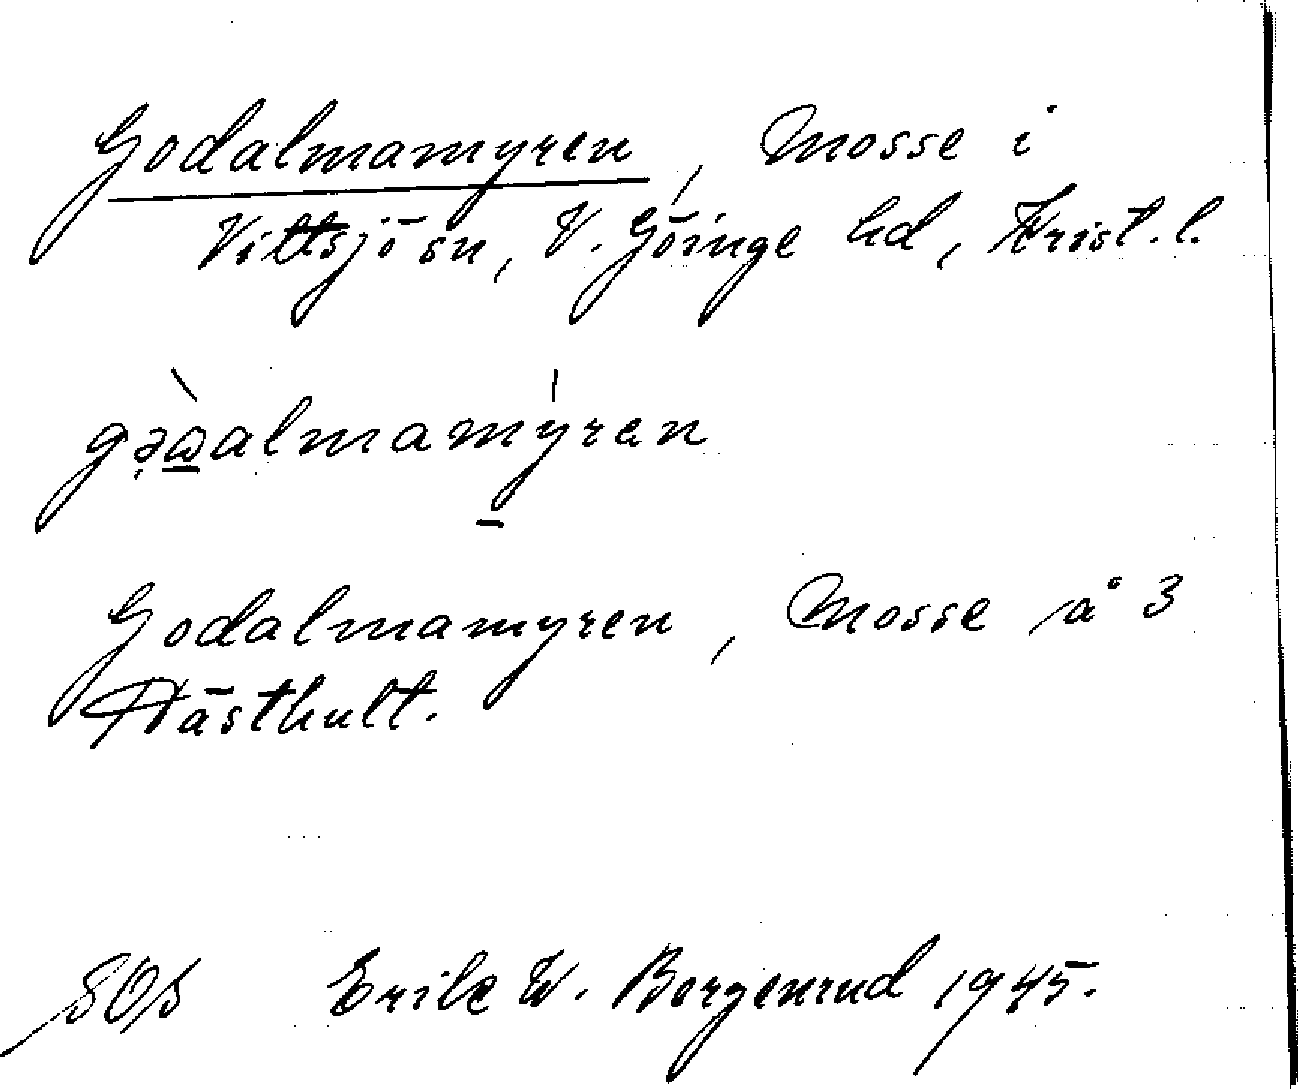 Godalmamyren, Mosse i
Vittsjö sn, V. Göinge hd, Krist. l.
Godalmamyren, Mosse å 3
Hästhult.
Erik W. Borgenrud 1945.